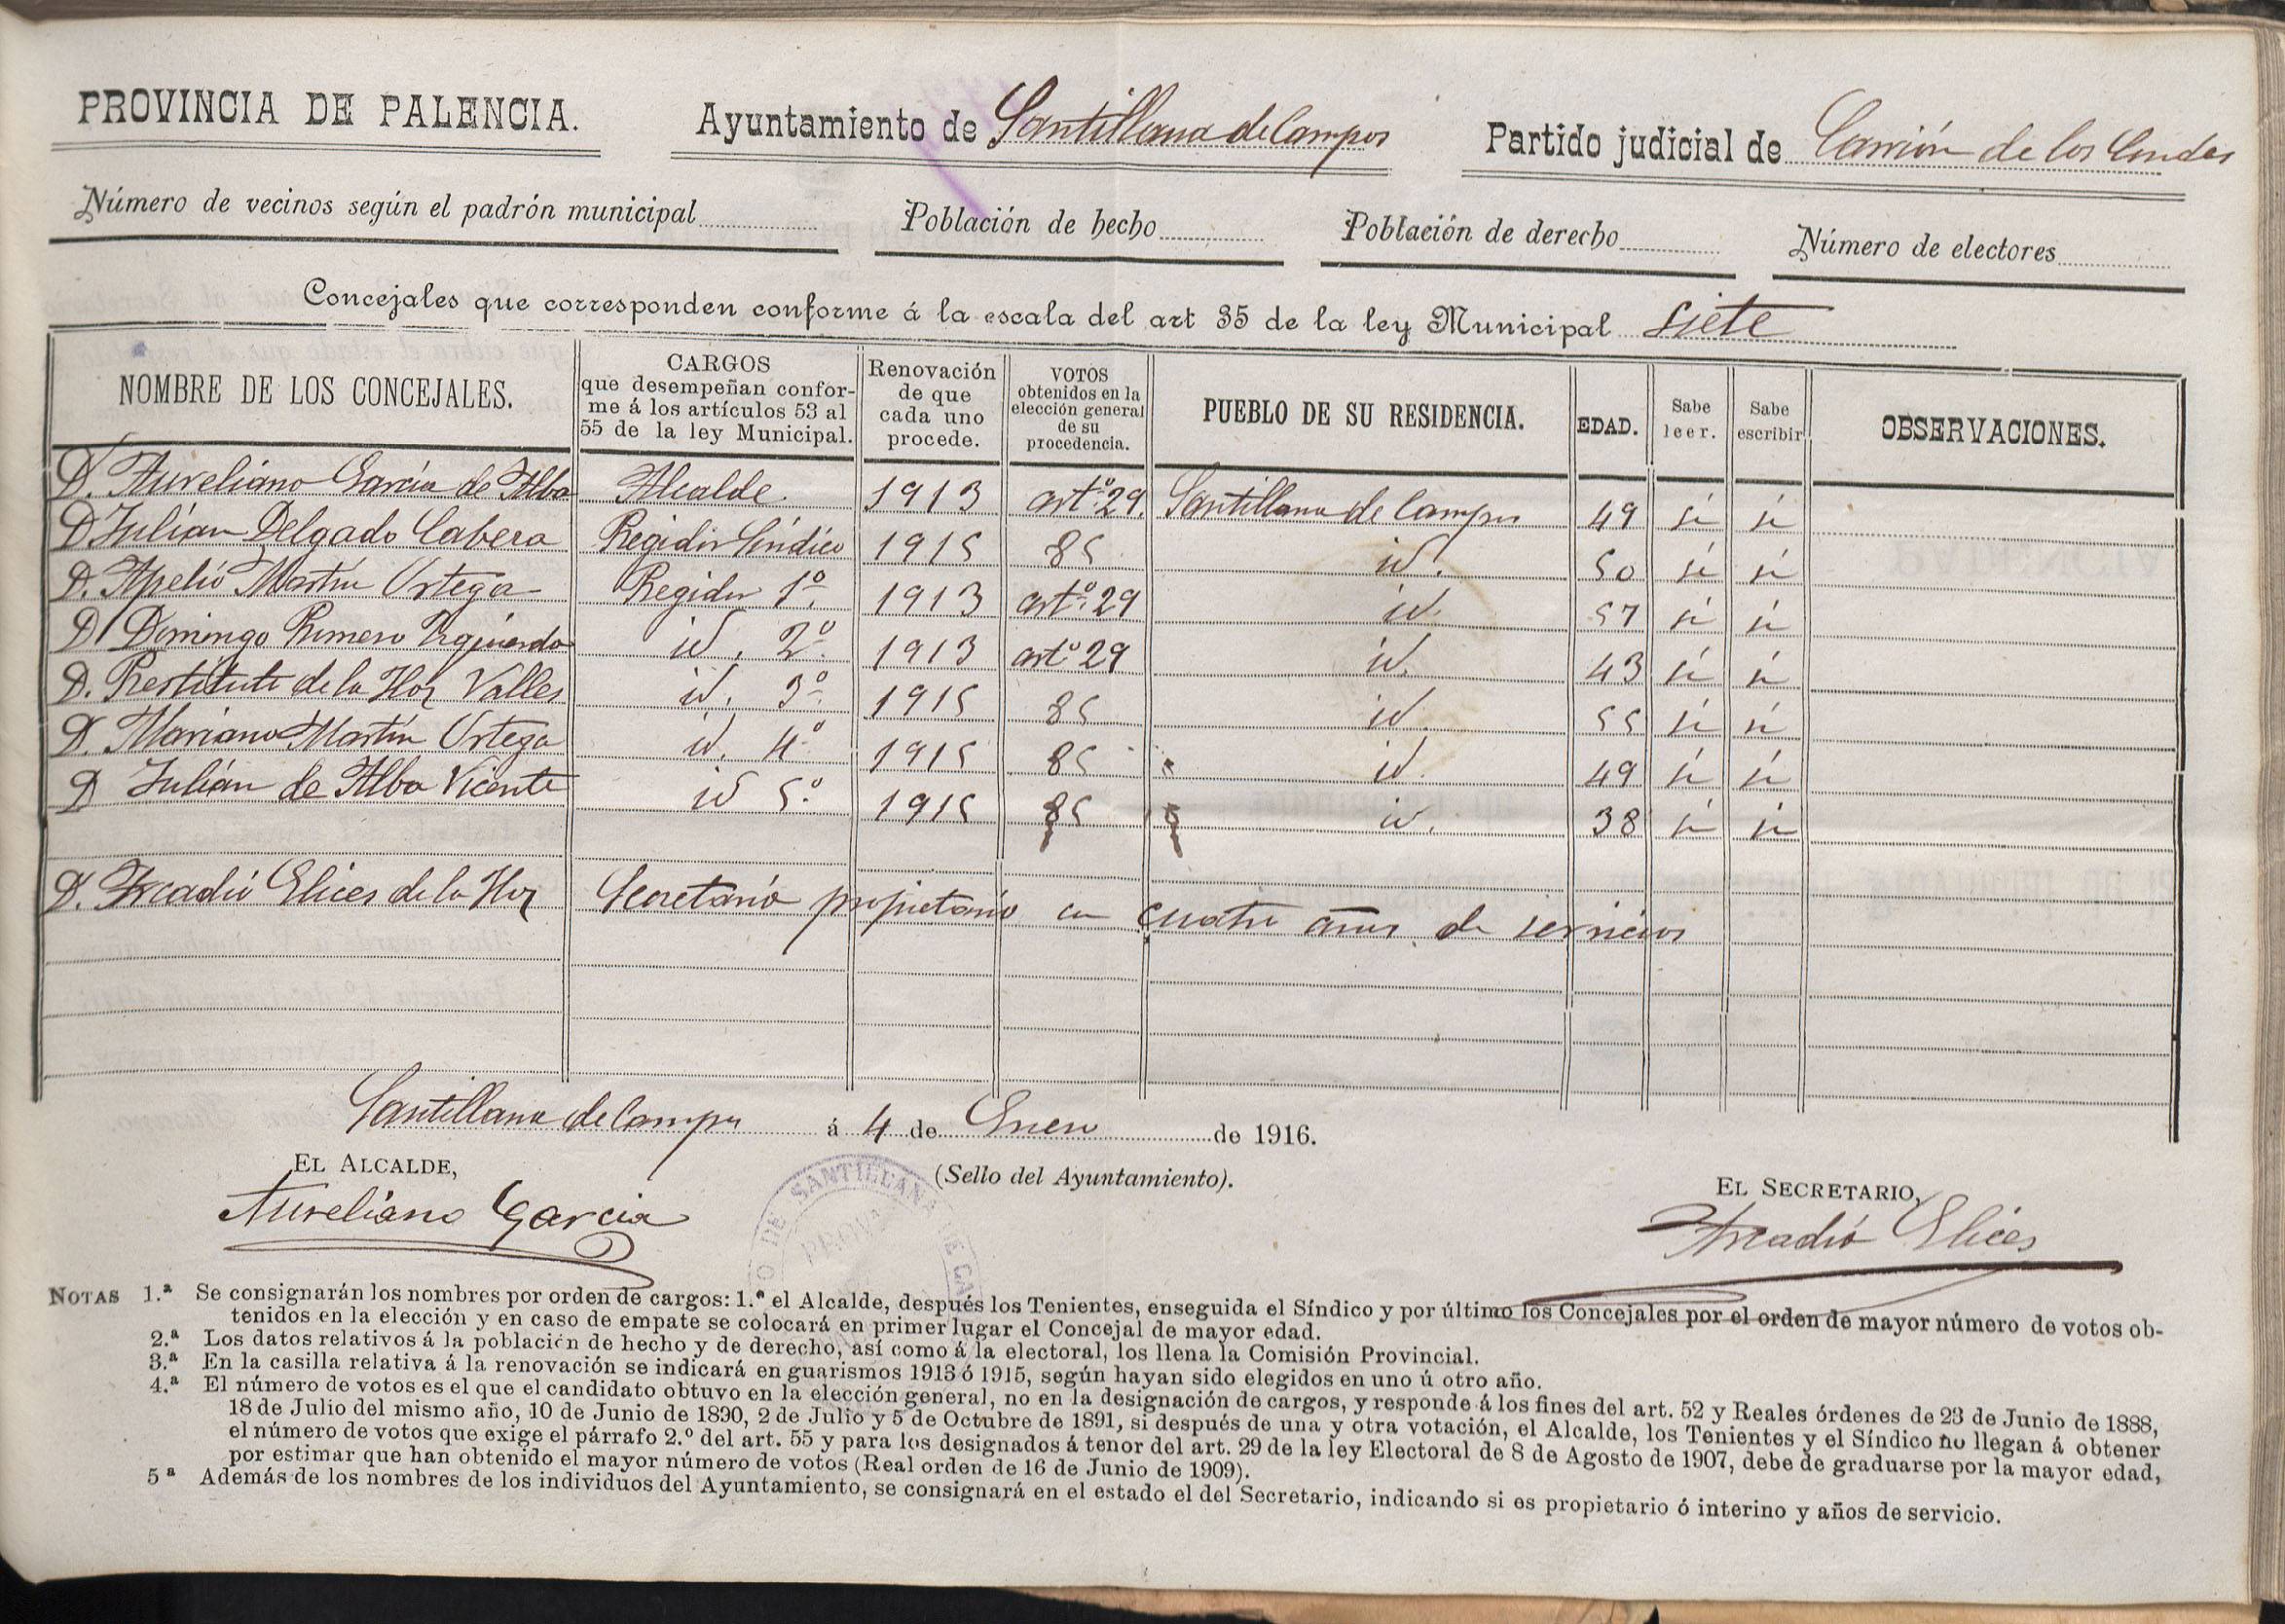 PROVINCIA DE PALENCIA. Ayuntamiento de Santillana de Campos Partido judicial de Carrión de los Condes
Número de vecinos según el padrón municipal Población de hecho Población de derecho Número de electores
Concejales que corresponden conforme á la escala del art 35 de la ley Municipal siete
NOMBRE DE LOS CONCEJALES.
CARGOS
que desempeñan confor-
me á los artículos 53 al
55 de la ley Municipal.
Renovación
de que
cada uno
procede.
VOTOS
obtenidos en la
elección general
de su
procedencia.
PUEBLO DE SU RESIDENCIA.
EDAD.
Sabe
leer.
Sabe
escribir
OBSERVACIONES.
D. Aureliano García de Alba Alcalde. 1913 artº 29. Santillana de Campos 49 si si
D Julián Delgado Cabera Regidor Síndico 1915 85 id. 50 si si
D. Apelio Martín Ortega Regidor 1º 1913 artº 29 id. 57 si si
D Domingo Romero Izquierdo id. 2º 1913 artº 29 id. 43 si si
D. Restituto de la Hoz Valles id. 3º 1915 85 id. 55 si si
D. Mariano Martín Ortega id. 4º 1915 85 id. 49 si si
D Julián de Alba Vicente id 5º 1915 85 id. 38 si si
D. Arcadio Elices de la Hoz Secretario propietario con cuatro años de servicios
Santillana de Campos á 4 de Enero de 1916.
EL ALCALDE,
(Sello del Ayuntamiento).
EL SECRETARIO,
Aureliano Garcia
DE SANTILLANA DE CA
PROVA
Arcadio Elices
NOTAS 1.ª Se consignarán los nombres por orden de cargos: 1.º el Alcalde, después los Tenientes, enseguida el Síndico y por último los Concejales por el orden de mayor número de votos ob-
tenidos en la elección y en caso de empate se colocará en primer lugar el Concejal de mayor edad.
2.ª Los datos relativos á la población de hecho y de derecho, así como á la electoral, los llena la Comisión Provincial.
3.ª En la casilla relativa á la renovación se indicará en guarismos 1913 ó 1915, según hayan sido elegidos en uno ú otro año.
4.ª El número de votos es el que el candidato obtuvo en la elección general, no en la designación de cargos, y responde á los fines del art. 52 y Reales órdenes de 23 de Junio de 1888,
18 de Julio del mismo año, 10 de Junio de 1890, 2 de Julio y 5 de Octubre de 1891, si después de una y otra votación, el Alcalde, los Tenientes y el Síndico no llegan á obtener
el número de votos que exige el párrafo 2.º del art. 55 y para los designados á tenor del art. 29 de la ley Electoral de 8 de Agosto de 1907, debe de graduarse por la mayor edad,
por estimar que han obtenido el mayor número de votos (Real orden de 16 de Junio de 1909).
5ª Además de los nombres de los individuos del Ayuntamiento, se consignará en el estado el del Secretario, indicando si es propietario ó interino y años de servicio.